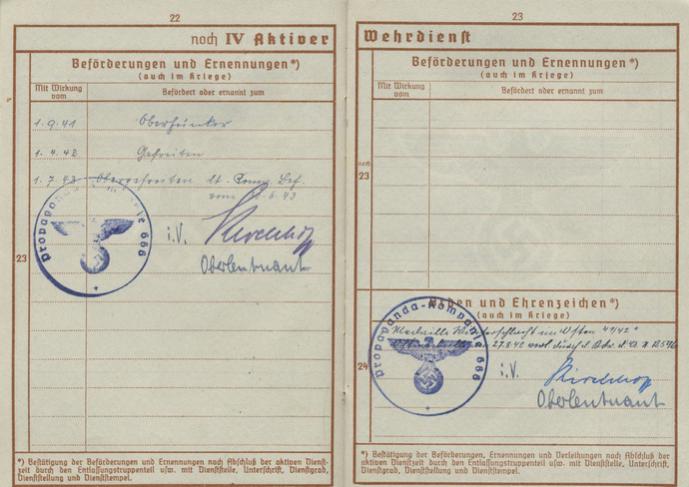 22
noch IV Aktiver
Beförderungen und Ernennungen*)
(auch im Kriege)
Mit Wirkung vom
Befördert oder ernannt zum
1.9.41 Oberfunker
1.4.42 Gefreiten
1.7.43 Obergefreiten lt. Komp. Bef.
vom 6.43
23
Propaganda-Kompanie 666
i.V.
Oberleutnant
*) Bestätigung der Beförderungen und Ernennungen nach Abschluß der aktiven Dienst-
zeit durch den Entlassungstruppenteil usw. mit Dienststelle, Unterschrift, Dienstgrad,
Dienststellung und Dienststempel.
23
Wehrdienst
Beförderungen und Ernennungen*)
(auch im Kriege)
Mit Wirkung vom
Befördert oder ernannt zum
noch
23
Orden und Ehrenzeichen*)
(auch im Kriege)
Medaille Winterschlacht im Osten 41/42"
27.8.42
24
Propaganda-Kompanie 666
i.V.
Oberleutnant
*) Bestätigung der Beförderungen, Ernennungen und Verleihungen nach Abschluß der
aktiven Dienstzeit durch den Entlassungstruppenteil usw. mit Dienststelle, Unterschrift,
Dienstgrad, Dienststellung und Dienststempel.